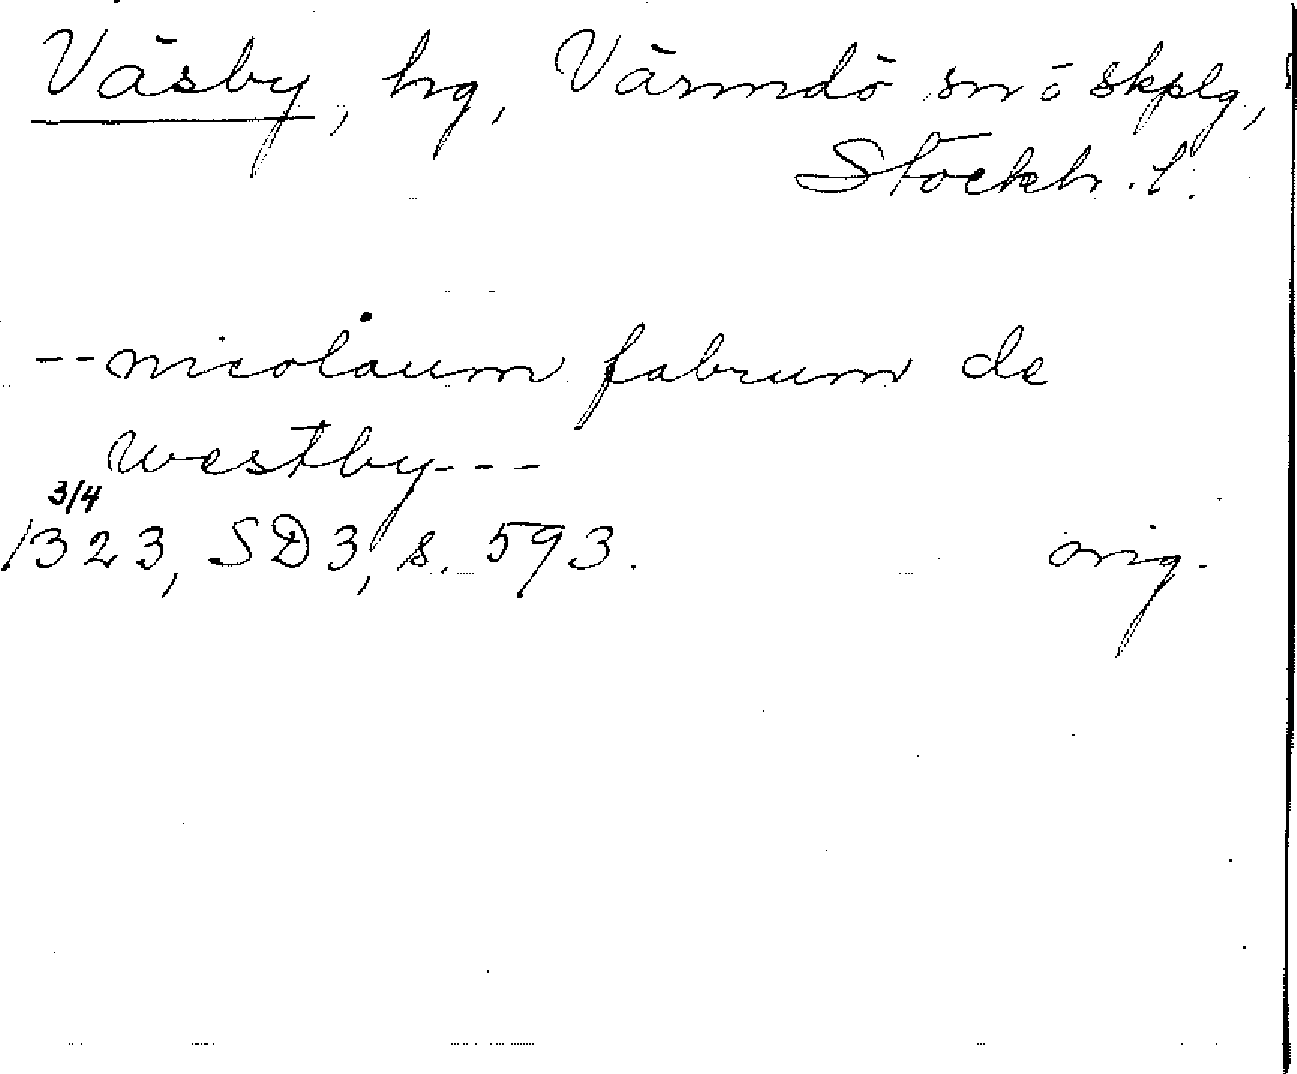 Väsby, hg, Värmdö sn ö skplg,
Stockh. l.
-- nicolaum fabrum de
westby ---
3/4
1323, SD3, s. 593. orig.